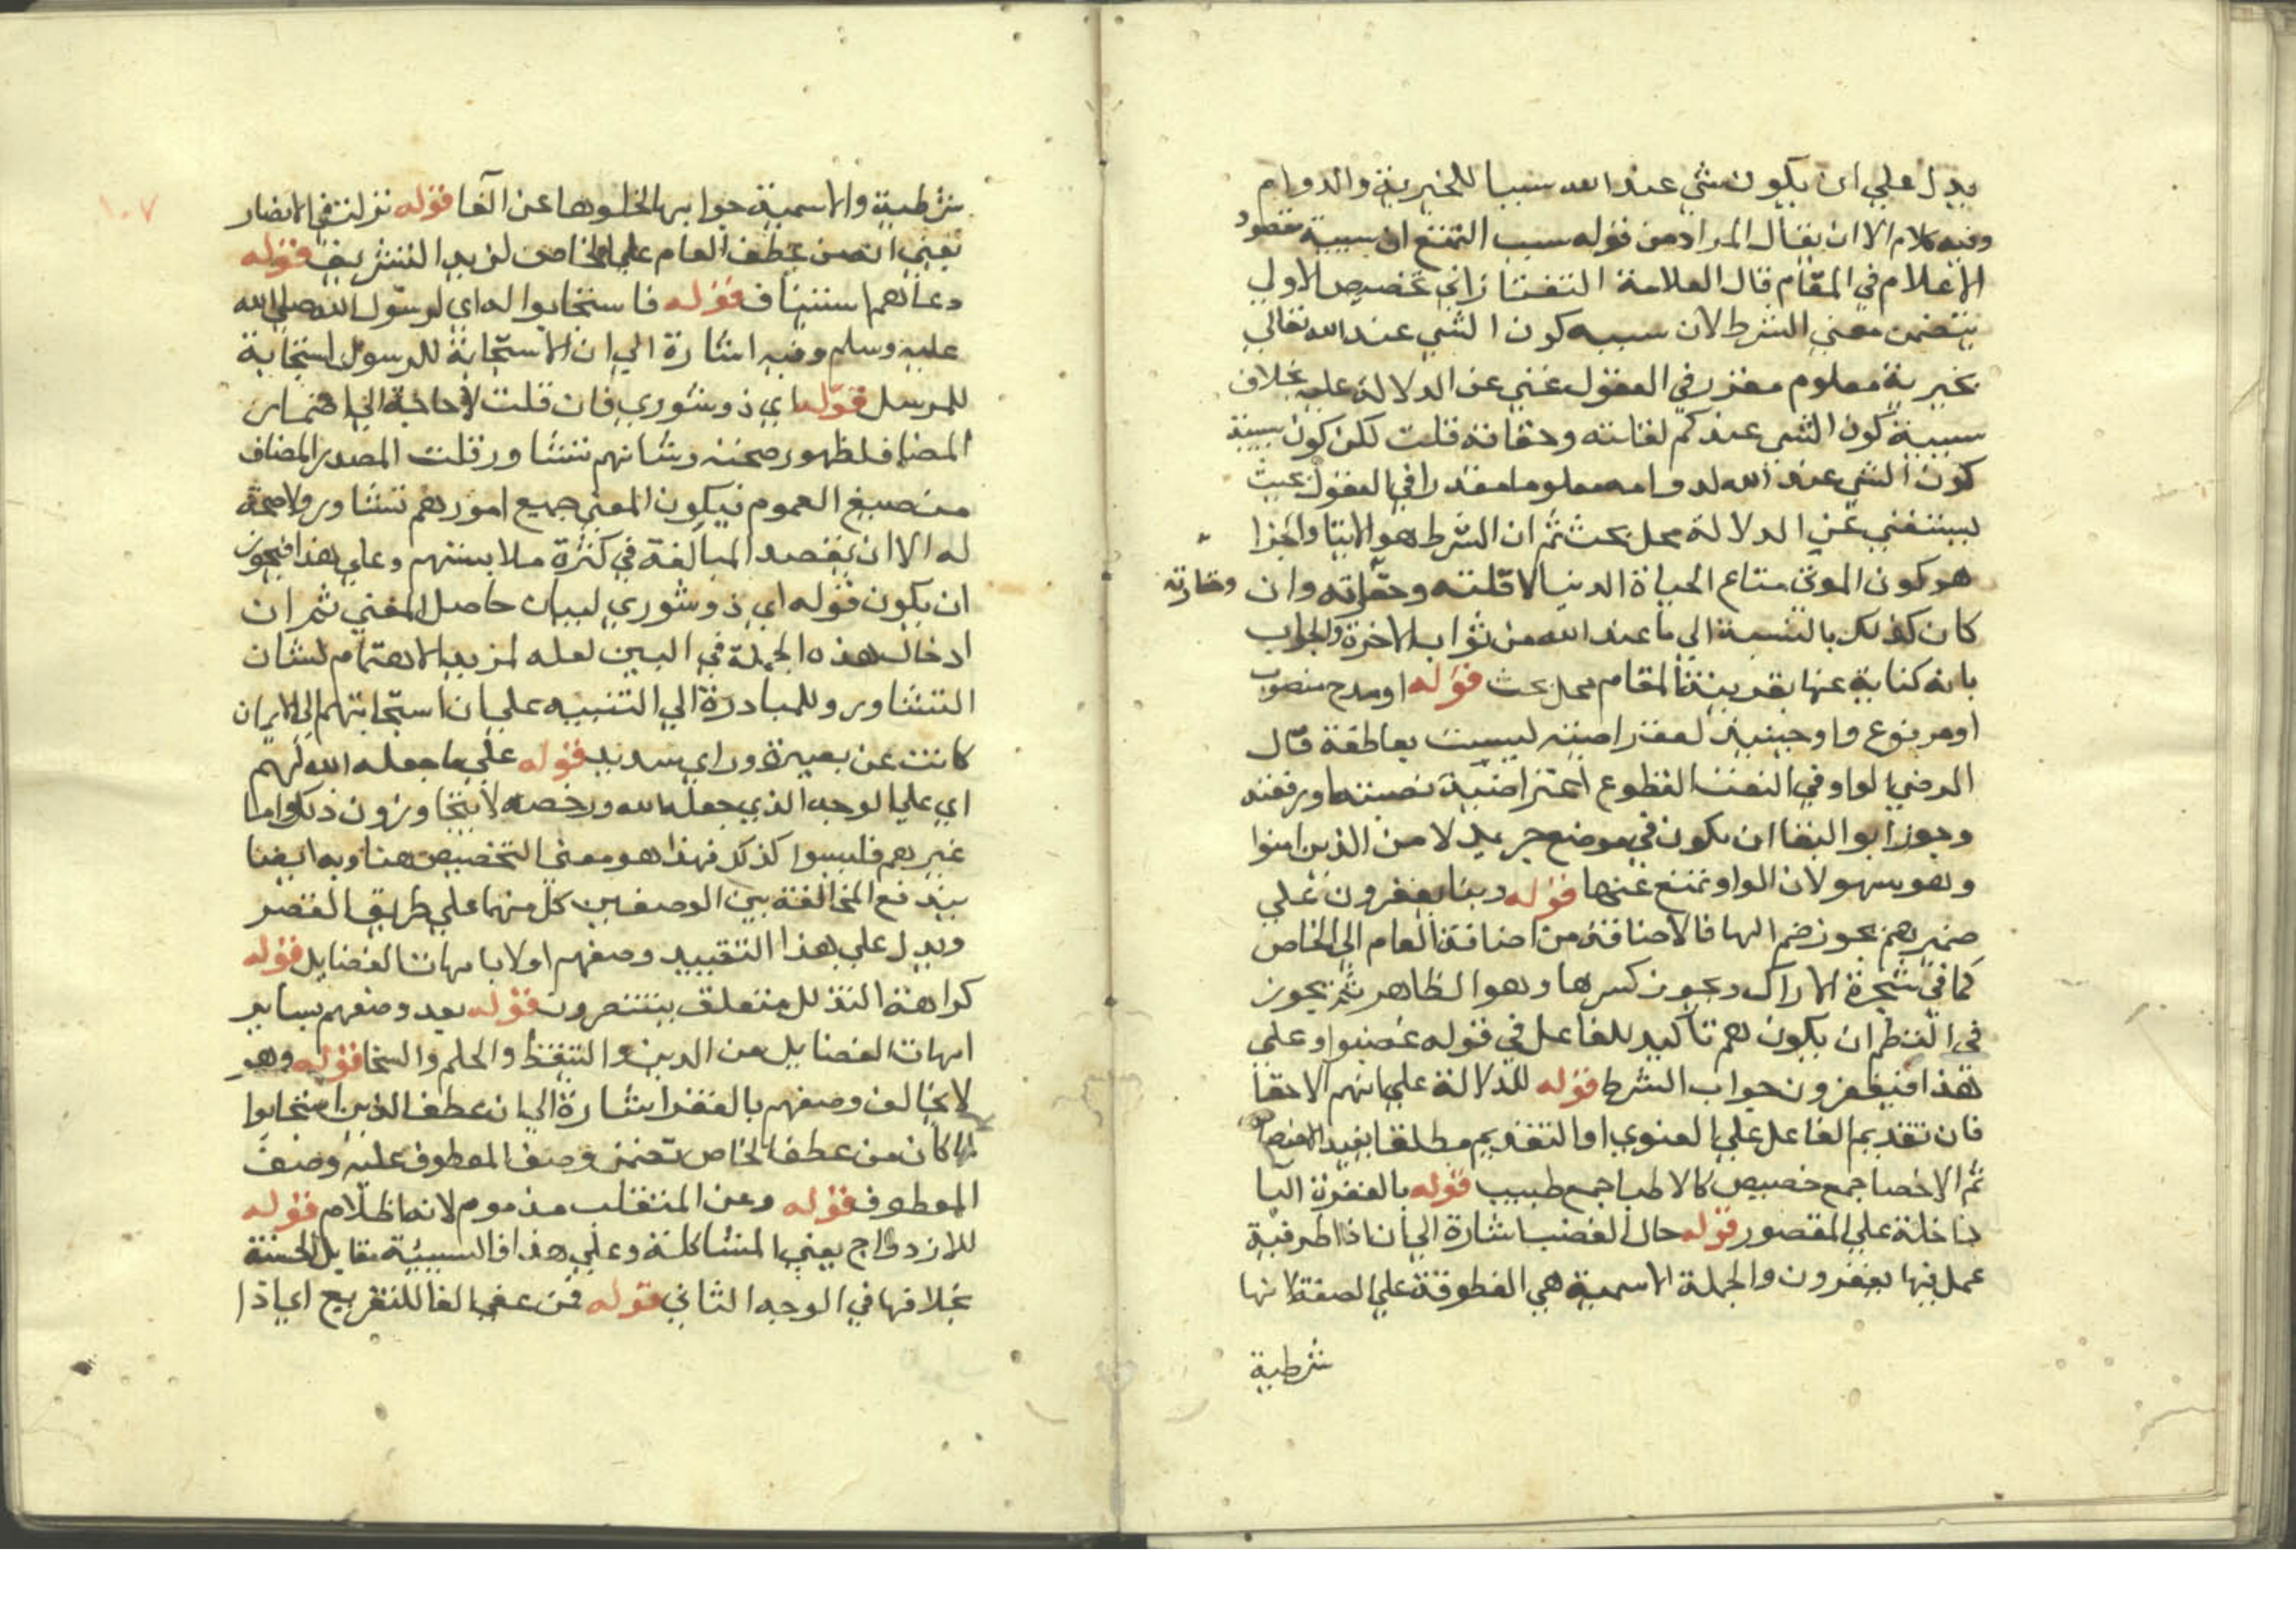 يدل علي ان يكون شي عند الله سببا للخيرية والدوام
وفيه كلام الا ان يقال المراد من قوله سبب التمتع ان سببية مقصود
الاعلام في المقام قال العلامة التفتازاني تخصيص الاولي
بتضمن معني الشرط لان سببيه كون الشي عند الله تعالي
بخيرية معلوم مقرر في العقول غني عن الدلالة عليه بخلاف
سببية كون الشي عندكم لفنائه وحقارته قلت لكن كون سببية
كون الشي عند الله لدوامه معلوما مقدرا في العقول بحيث
يستغني عن الدلالة محل بحث ثم ان الشرط هو الايتا والجزا
هو كون الموتي متاع الحياة الدنيا لا قلته وحقارته وان
وحقارته
كان كذلك بالنسبة الي ما عند الله من ثواب الاخرة والجواب
بانه كناية عنها بقرينة المقام محل بحث قوله او مدح منصوب
او مرفوع واو حينيذ اعتراضية ليست بعاطفة قال
الرضي الواو في النعت المقطوع اعتراضية نصبته او رفعته
وجوز ابو البقا ان يكون في موضع جر بدلا من الذين امنوا
وهو سهو لان الواو تمنع عنها قوله وبنا يغفرون علي
ضميرهم يجوز ضم الها فالاضافة من اضافة العام الي الخاص
كما في شجرة الاراك ويجوز كسرها وهو الظاهر ثم يجوز
في النظم ان يكون هم تاكيد للفاعل في قوله غضبوا وعلي
هذا فيغفرون جواب الشرط قوله للدلالة علي انهم الاحقا
فان تقديم الفاعل علي المعنوي او التقديم مطلقا يفيد الاختصاص
ثم الاخصا جمع خصيص كالاطبا جمع طبيب قوله بالمغفرة البا
داخلة علي المقصور قوله حال الغضب اشارة الي ان اذا ظرفية
عمل فيها يغفرون والجملة الاسمية هي المعطوفة علي الصفة لا نها
شرطية
١٠٧
شرطية والاسمية جوابها لخلوها عن الفا قوله نزلت في الانصار
يعني انه من عطف العام علي الخاص لمزيد التشريف قوله
دعاهم استيناف قوله فاستجابوا له اي لرسول الله صلي الله
عليه وسلم وفيه اشارة الي ان الاستجابة للرسول استجابة
للمرسل قوله اي ذو شوري فان قلت لا حاجة الي اضمار
المضاف لظهور صحته وشانهم تشاور قلت المصدر المضاف
من صيغ العموم فيكون المعني جميع امورهم تشاور ولا صحة
له الا ان يقصد المبالغة في كثرة ملابستهم وعلي هذا فيجوز
ان يكون قوله اي ذو شوري لبيان حاصل المعني ثم ان
ادخال هذه الجملة في البين لعله لمزيد الاهتمام لشان
التشاور وللمبادرة الي التنبيه علي ان استجابتهم الي الايمان
كانت عن بصيرة وراي سديد قوله علي ما جعله الله لهم
اي علي الوجه الذي جعله الله ورخصه لا يتجاوزون ذلك واما
غيرهم فليسوا كذلك فهذا هو معني التخصيص هنا وبه ايضا
يندفع المخالفة بين الوصفين كل منهما علي طريق القصر
ويدل علي هذا التقييد وصفهم اولا بامهات الفضايل قوله
كراهة التذلل متعلق بينتصرون قوله بعد وصفهم بساير
امهات الفضايل من الدين والتيقظ والحلم والسخا قوله وهو
لا يخالف وصفهم بالغفرا اشارة الي ان عطف الذين استجابوا
لما كان من عطف الخاص تضمن وصف المعطوف عليه وصف
المعطوف قوله وعن المتقلب مذموم لانه اظلام قوله
للازدواج يعني المشاكلة وعلي هذا فالسيئة مقابل الحسنة
بخلافها في الوجه الثاني قوله فمن عفي الفا للتفريع اي اذا